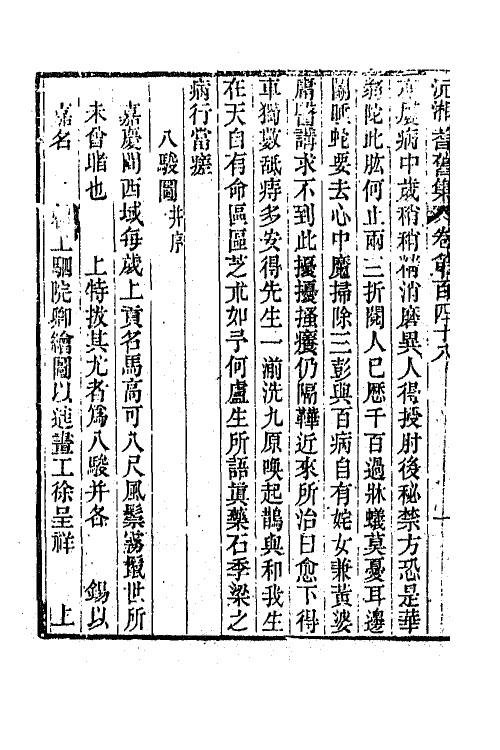 沅湘耆舊集 卷第百四十八
虛病中歲稍稍精消磨異人得授肘後秘禁方恐是華
陀此肱何止兩三折閱人已歷千百過牀蟻莫憂耳邊
鬭睡蛇要去心中魔掃除三彭與百病自有姹女兼黃婆
庸醫講求不到此擾擾搔癢仍隔鞾近來所治日愈下得
車獨數舐痔多安得先生一湔洗九原喚起鵲與和我生
在天自有命區區芝朮如予何盧生所語真藥石季梁之
病行當瘥
八駿圖并序
嘉慶間西域每歲上貢名馬高可八尺風鬃霧鬣世所
未曾睹也 上特拔其尤者爲八駿并各 錫以
嘉名 上駟院卿繪圖以進畫工徐呈祥 上